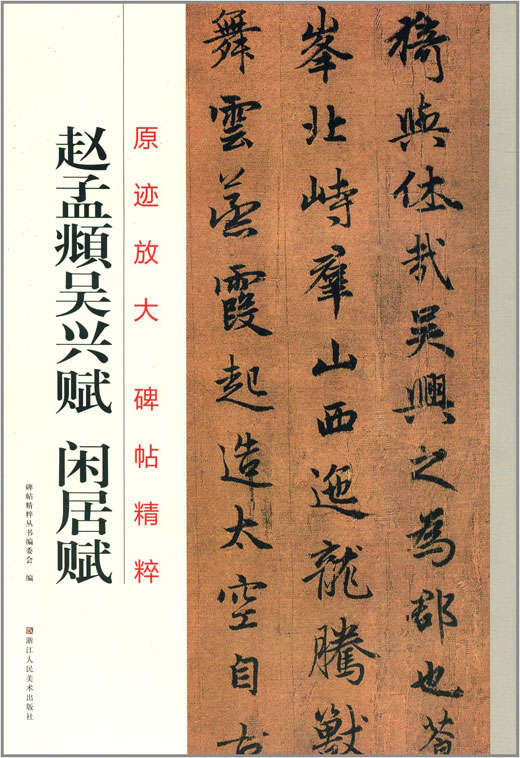 猗與休哉吳興之為郡也蒼
峯北峙羣山西迤龍騰獸
舞雲蒸霞起造太空自古
原迹放大 碑帖精粹
赵孟頫吴兴赋 闲居赋
碑帖精粹丛书编委会 编
浙江人民美术出版社